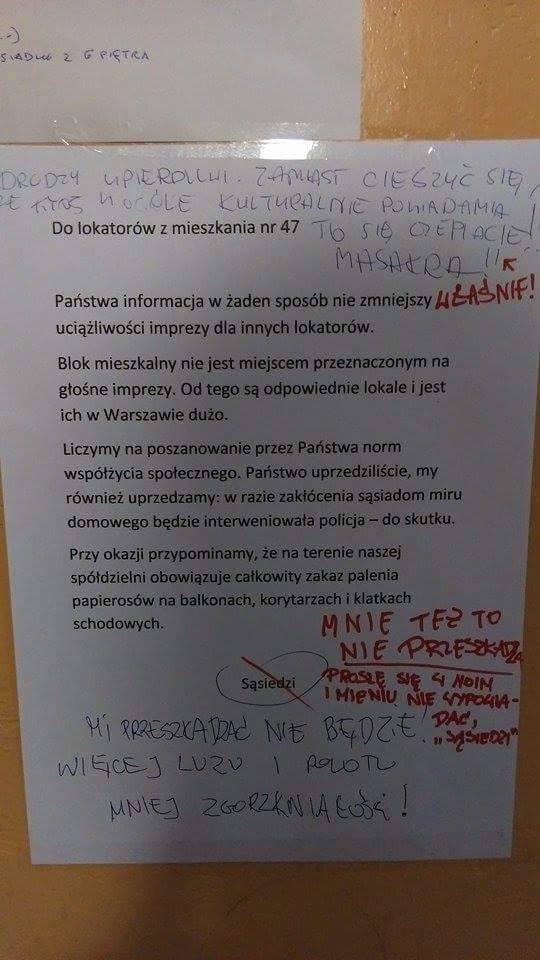 :-)
SIADUJ Z 6 PIĘTRA
DRODZY UPIERDLIWI. ZAMIAST CIESZYĆ SIĘ,
ŻE KTOŚ W OGÓLE KULTURALNIE POWIADAMIA
TO SIĘ CZEPIACIE!!!
MASAKRA!!
WŁAŚNIE!
Do lokatorów z mieszkania nr 47
Państwa informacja w żaden sposób nie zmniejszy
uciążliwości imprezy dla innych lokatorów.
Blok mieszkalny nie jest miejscem przeznaczonym na
głośne imprezy. Od tego są odpowiednie lokale i jest
ich w Warszawie dużo.
Liczymy na poszanowanie przez Państwa norm
współżycia społecznego. Państwo uprzedziliście, my
również uprzedzamy: w razie zakłócenia sąsiadom miru
domowego będzie interweniowała policja – do skutku.
Przy okazji przypominamy, że na terenie naszej
spółdzielni obowiązuje całkowity zakaz palenia
papierosów na balkonach, korytarzach i klatkach
schodowych.
Sąsiedzi
MNIE TEŻ TO
NIE PRZESZKADZA
PROSZĘ SIĘ W MOIM
IMIENIU NIE WYPOWIA-
DAĆ,
„SĄSIEDZI"
MI PRZESZKADZAĆ NIE BĘDZIE!
WIĘCEJ LUZU I POLOTU
MNIEJ ZGORZKNIAŁOŚCI!